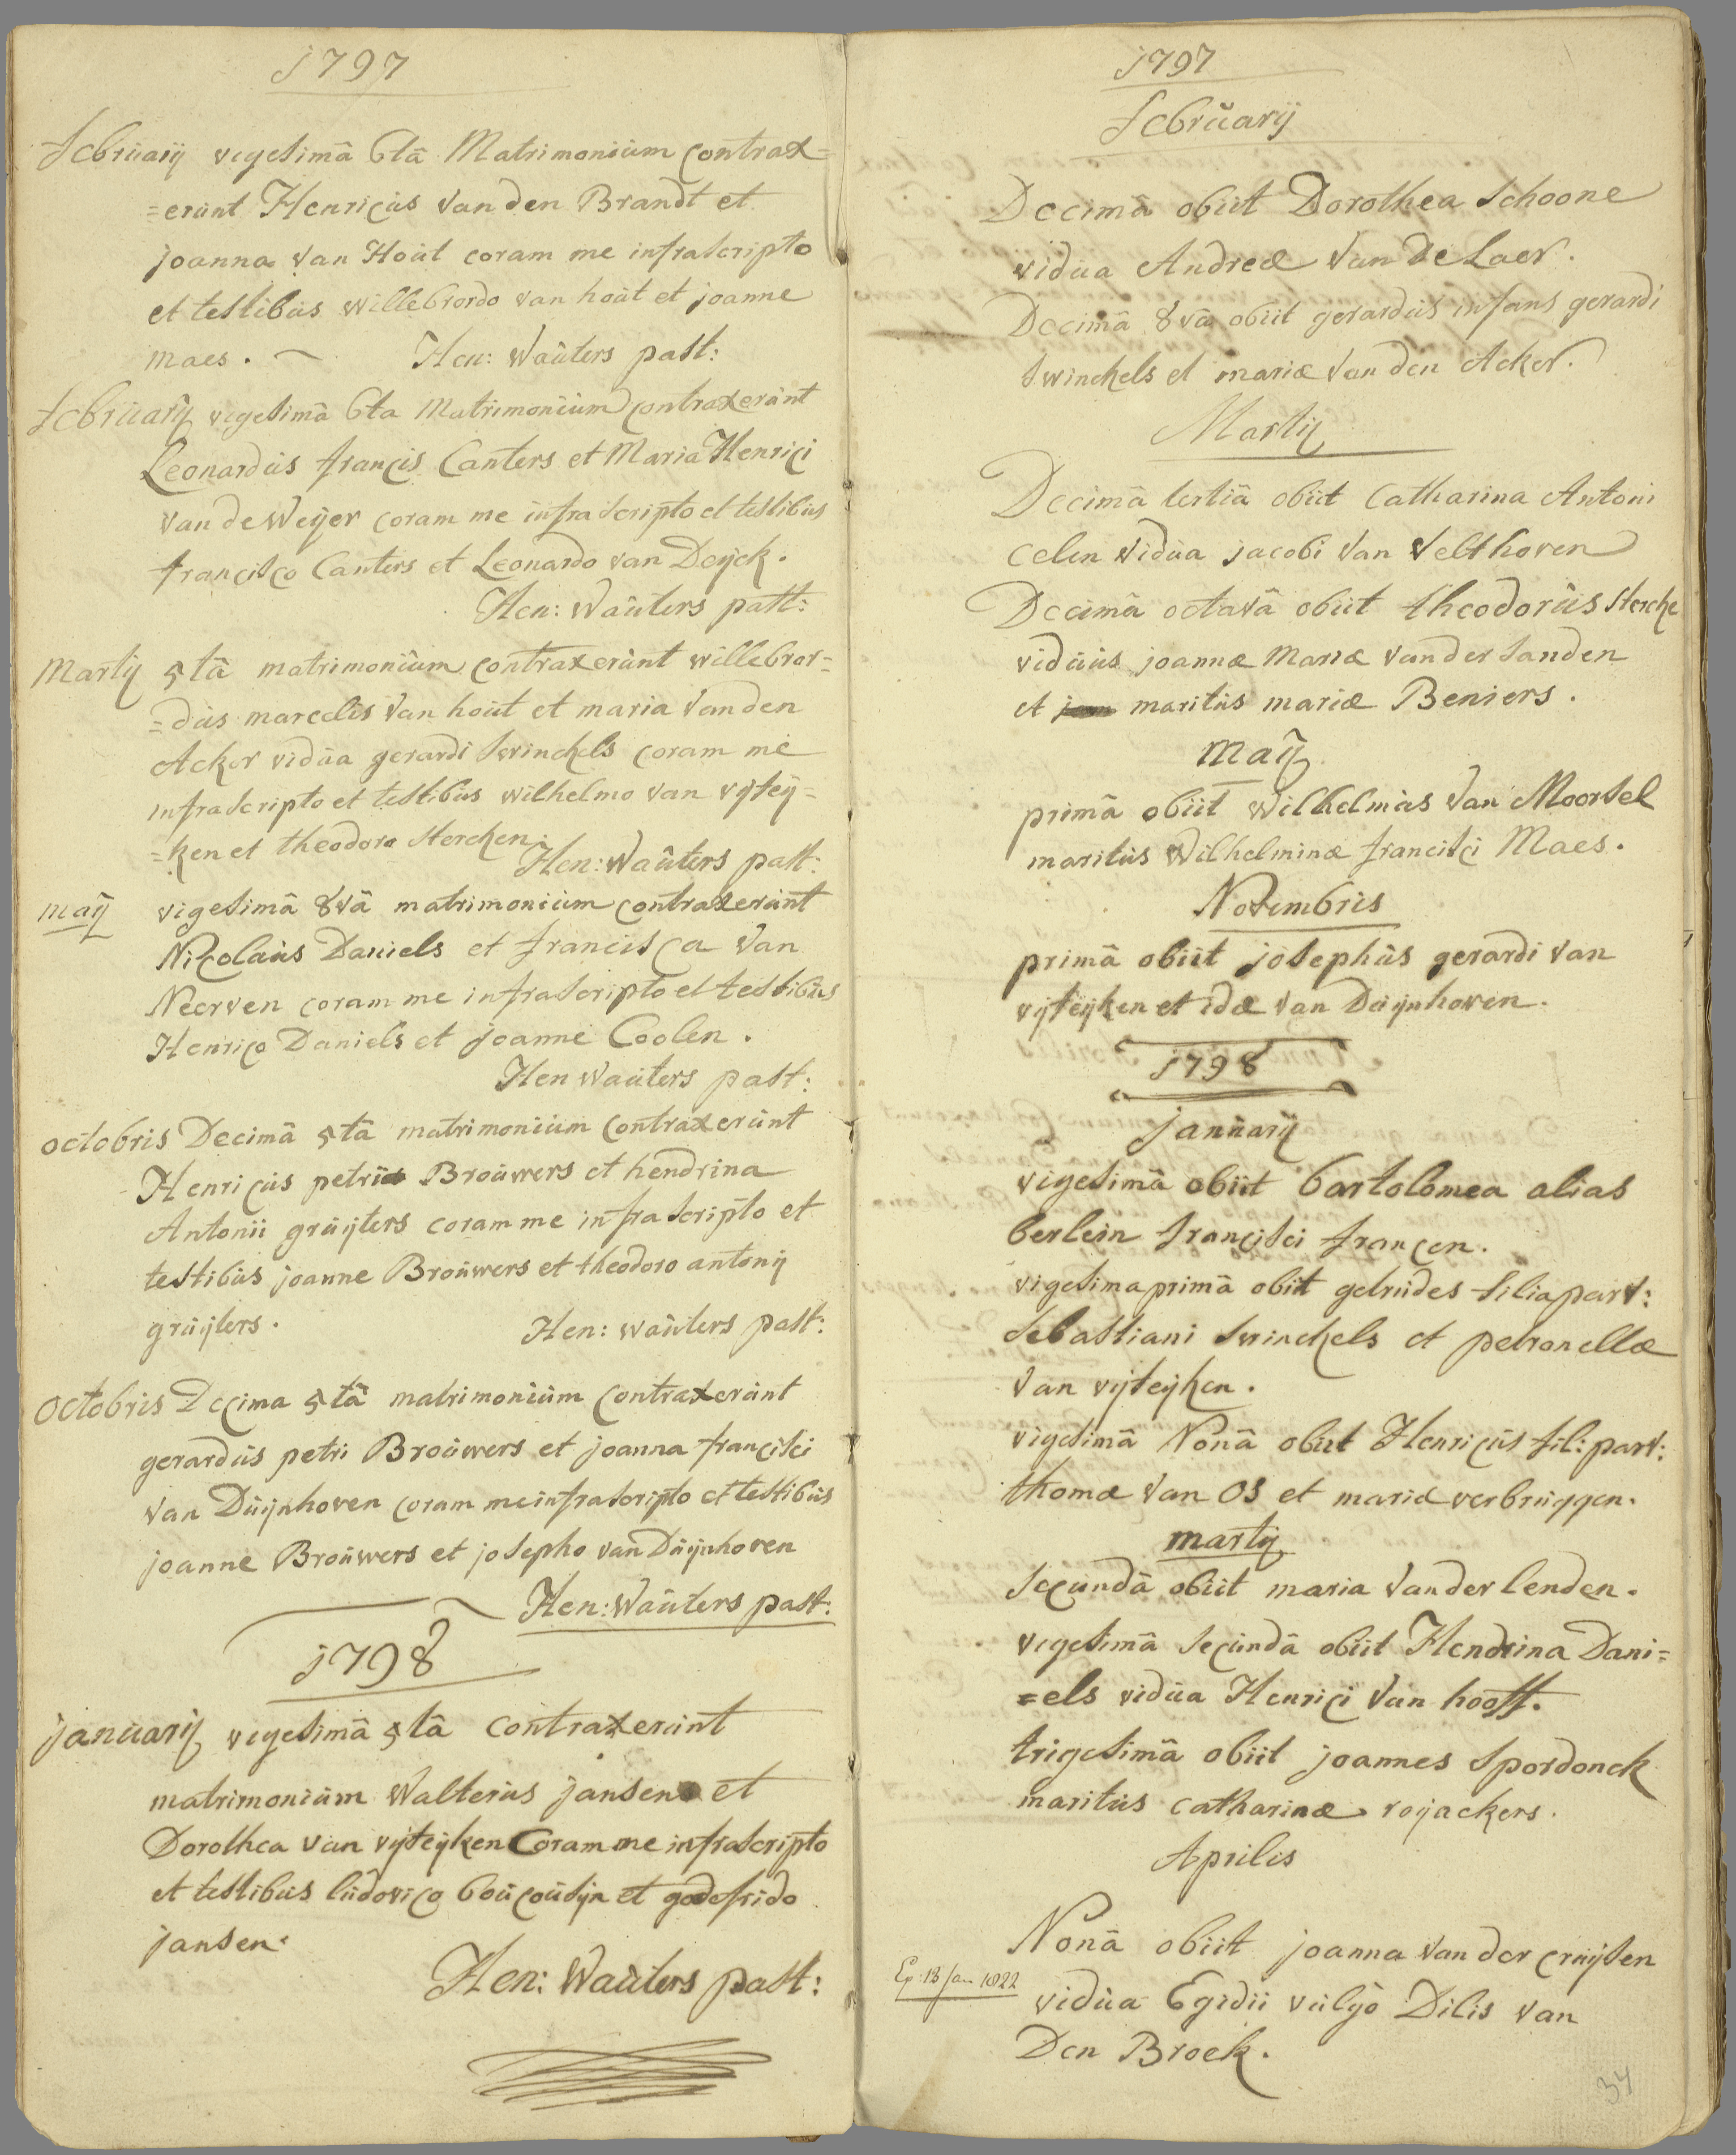 1797
februarij vigesimâ 6tâ Matrimonium contrax=
=erunt Henricus Van den Brandt et
joanna Van Hout coram me infrascripto
et testibus willebrordo van hout et joanne
maes. Hen: Wauters past:
februarij vigesimâ 6ta Matrimonium contraxerunt
Leonardus francis Canters et Maria Henrici
Van de Weyer coram me infrascripto et testibus
francisco Canters et Leonardo van Deijck.
Hen: Wauters past:
Martij 5tâ matrimonium contraxerunt willebror=
=dus marcelis Van hout et maria Van den
Acker vidua gerardi Swinckels coram me
infrascripto et testibus wilhelmo van vijfeij=
=ken et theodoro Stercken.
Hen: Wauters past:
maij vigesimâ 8vâ matrimonium contraxerunt
Nicolaus Daniels et francisca Van
Neerven coram me infrascripto et testibus
Henrico Daniels et joanne Coolen.
Hen Wauters past:
octobris Decimâ 5tâ matrimonium contraxerunt
Henricus petri Brouwers et hendrina
Antonii gruijters coram me infrascripto et
testibus joanne Brouwers et theodoro antonij
gruijters. Hen: wauters past:
octobris Decima 5tâ matrimonium contraxerunt
gerardus petri Brouwers et joanna francisci
Van Duijnhoven coram me infrascripto et testibus
joanne Brouwers et josepho van Duijnhoven
Hen: Wauters past:
1798
januarij vigesimâ 5tâ contraxerunt
matrimonium Walterus jansen et
Dorothea van vijfeijken Coram me infrascripto
et testibus ludovico boucousijn et godefrido
jansen.
Hen: Wauters past:
1797
februarij
Decimâ obiit Dorothea Schoone
vidua Andreæ Van de Laer.
Decimâ 8vâ obiit gerardus infans gerardi
Swinckels et mariæ Van den Acker.
Martij
Decimâ tertiâ obiit Catharina Antoni
Celen vidua jacobi Van Velthoven
Decimâ octavâ obiit theodorus Stercke
viduus joannæ Mariæ Van der Sanden
et maritus mariæ Beniers.
maij
primâ obiit Wilhelmus Van Moorsel
maritus Wilhelminæ francisci Maes.
Novembris
primâ obiit josephus gerardi van
vijfeijken et idæ van Duijnhoven.
1798
januarij
vigesimâ obiit bartolomea alias
berlein francisci francen.
vigesima primâ obiit getrudes filia parv:
Sebastiani Swinckels et petronellæ
Van vijfeijken.
vigesimâ Nonâ obiit Henricus fil: parv:
thomæ Van Os et mariæ verbruggen.
martij
Secundâ obiit maria Van der lenden.
vigesimâ Secundâ obiit Hendrina Dani=
=els vidua Henrici Van hooff.
trigesimâ obiit joannes Spordonck
maritus catharinæ roijackers.
Aprilis
Nonâ obiit joanna Van der cruijsen
Ep: 13 jan 1822
vidua Egidii vulgo Dilis Van
Den Broek.
34